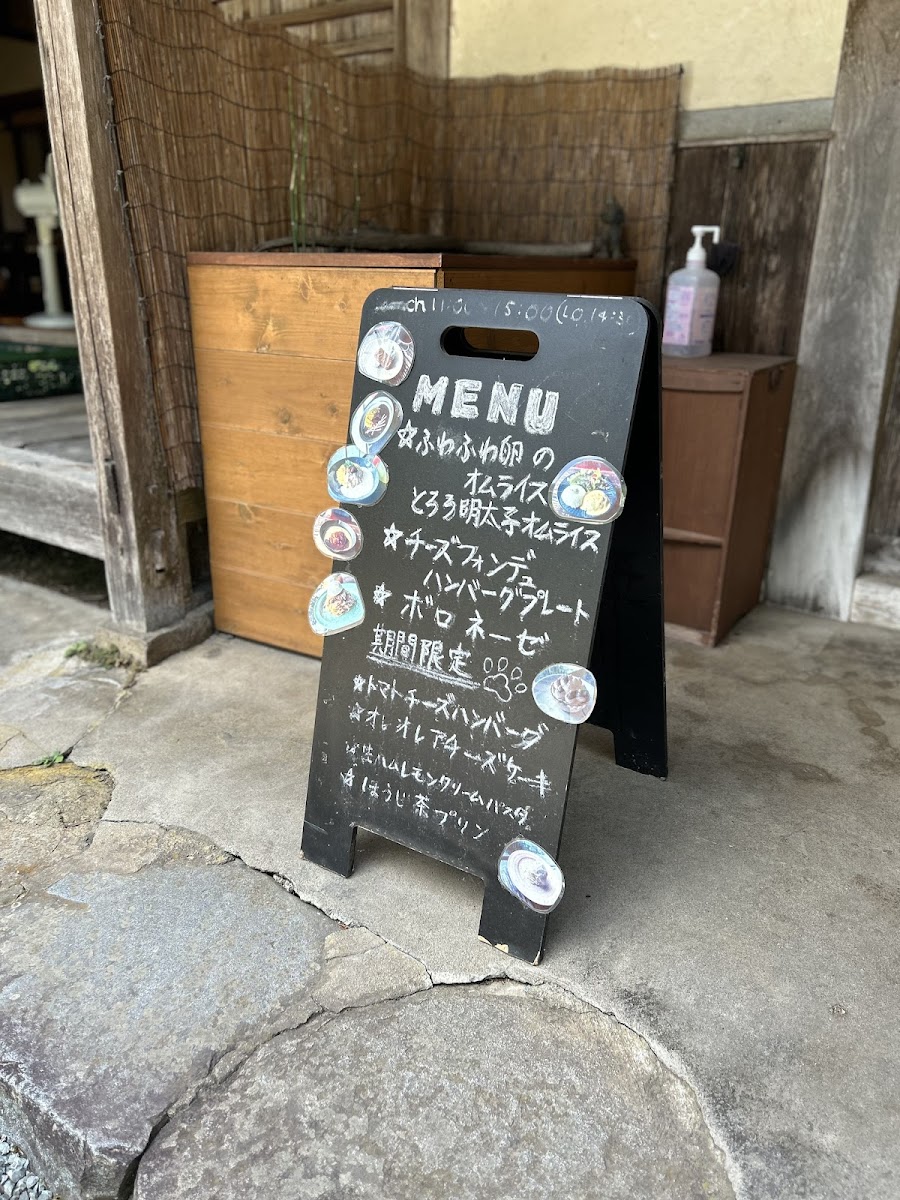 ch 11:00 - 15:00 (LO.14:30
MENU
☆ふわふわ卵の
オムライス
とろろ明太子オムライス
☆チーズフォンデュ
ハンバーグプレート
☆ボロネーゼ
期間限定
☆トマトチーズハンバーグ
☆オレオレアチーズケーキ
☆生ハムレモンクリームパスタ
☆ほうじ茶プリン